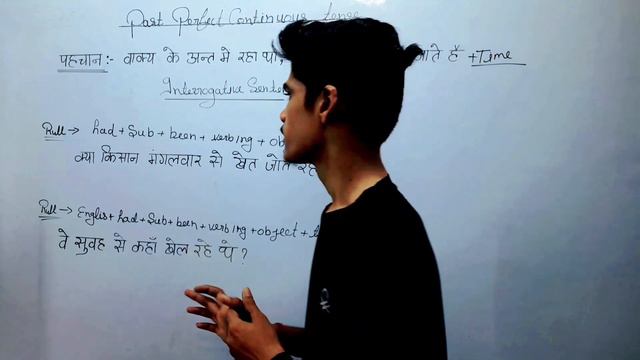 Past Perfect Continuous tense
पहचान :- वाक्य के अन्त मे रहा था, जाते है + Time
Interrogative Senten
Rull → had + Sub + been + verb ing + ob
क्या किसान मंगलवार से खेत जोत रहे
Rull → Englis + had + Sub + been + verb ing + object +
वे सुवह से कहाँ खेल रहे थे ?